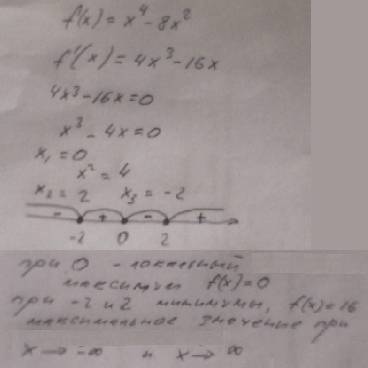 f(x) = x⁴ - 8x²
f'(x) = 4x³ - 16x
4x³ - 16x = 0
x³ - 4x = 0
x₁ = 0
x² = 4
x₂ = 2 x₃ = -2
- + - +
-2 0 2
при 0 - локальный
максимум f(x) = 0
при -2 и 2 минимумы, f(x) = 16
максимальное значение при
x → -∞ и x → ∞